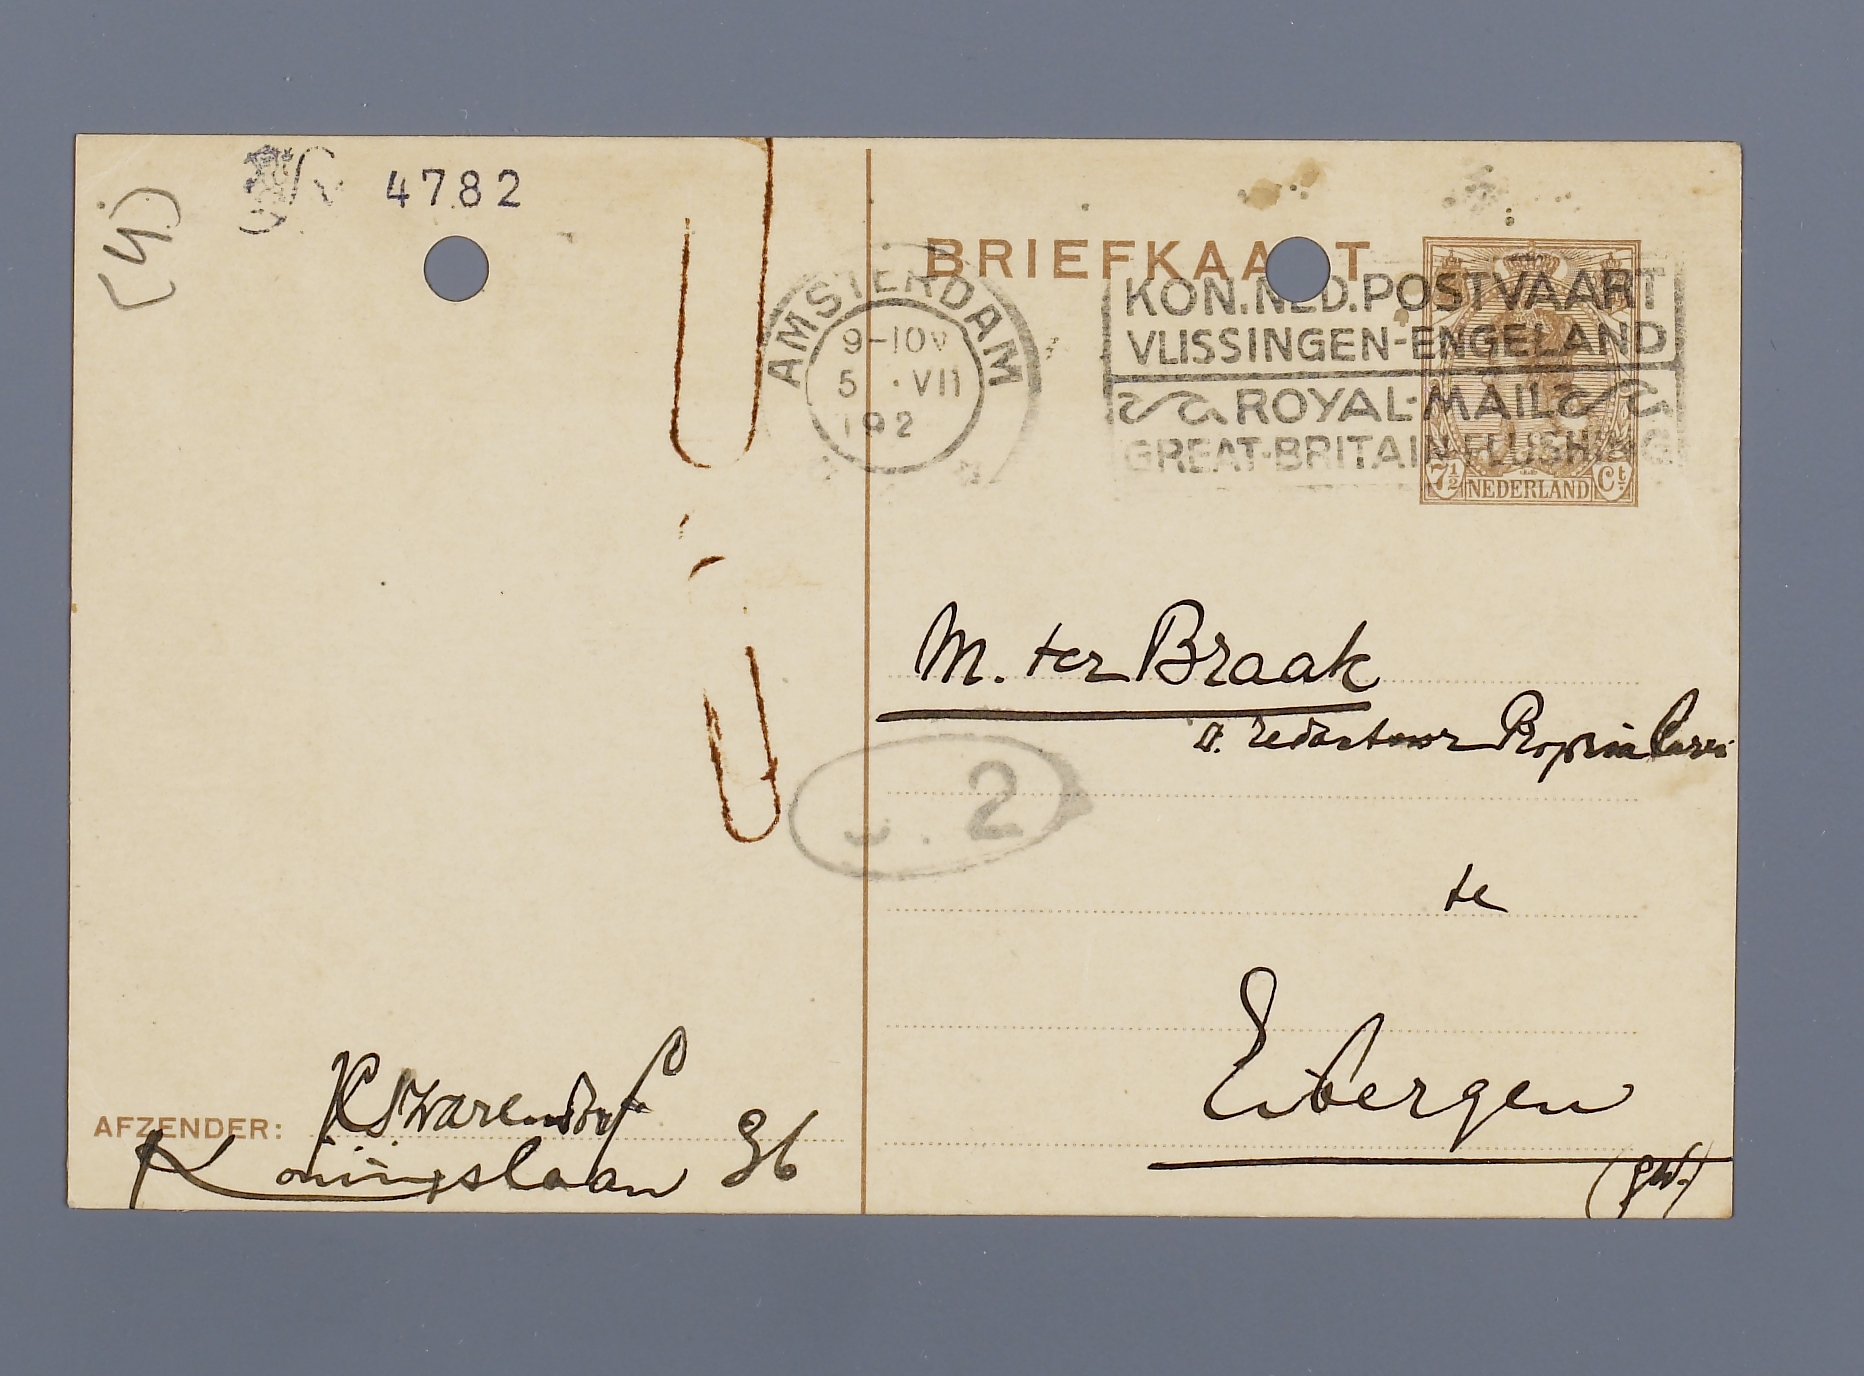 (4)
4782
BRIEFKAART
AMSTERDAM
9-10V
5 · VII
192
KON. NED. POSTVAART
VLISSINGEN-ENGELAND
ROYAL-MAIL
GREAT-BRITAIN-FLUSHING
7½ NEDERLAND Ct.
M. ter Braak
redacteur Propria Cures
2
te
Eibergen
(gld.)
AFZENDER: Warendorf
Koningslaan 36